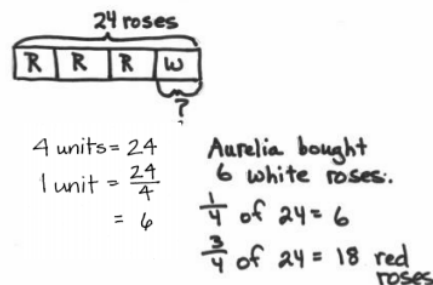 24 roses
R R R W
?
4 units = 24
1 unit = 24/4
= 6
Aurelia bought
6 white roses.
1/4 of 24 = 6
3/4 of 24 = 18 red
roses